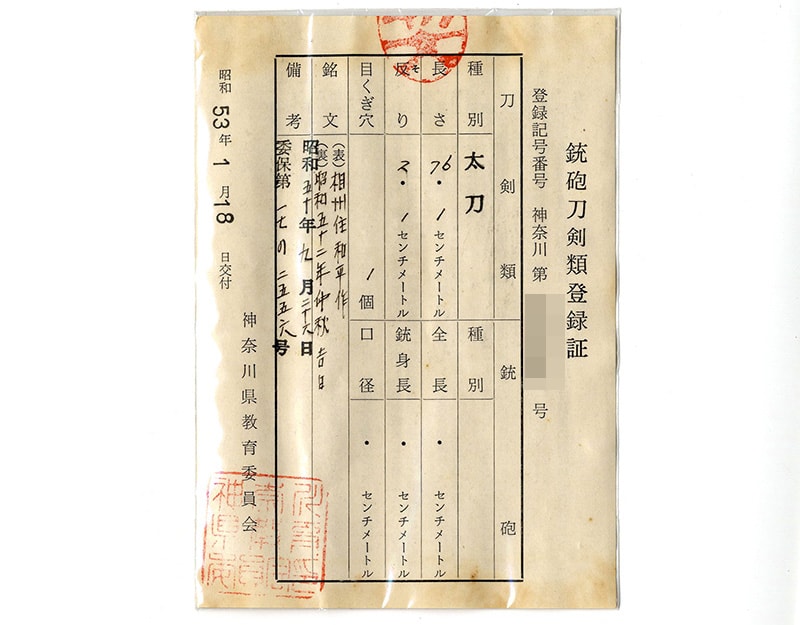 銃砲刀剣類登録証
登録記号番号 神奈川 第 号
刀剣類
銃砲
種別 太刀
種別
長さ 76・1センチメートル
全長 ・ センチメートル
反り 2・1センチメートル
ソモ
銃身長 ・ センチメートル
目くぎ穴 1個
口径 ・ センチメートル
銘文 (表)相州住和平作
(裏)昭和五十二年仲秋吉日
備考 昭和五十年九月二十六日
委保第一七の二五五六号
昭和53年1月18日交付
神奈川県教育委員会